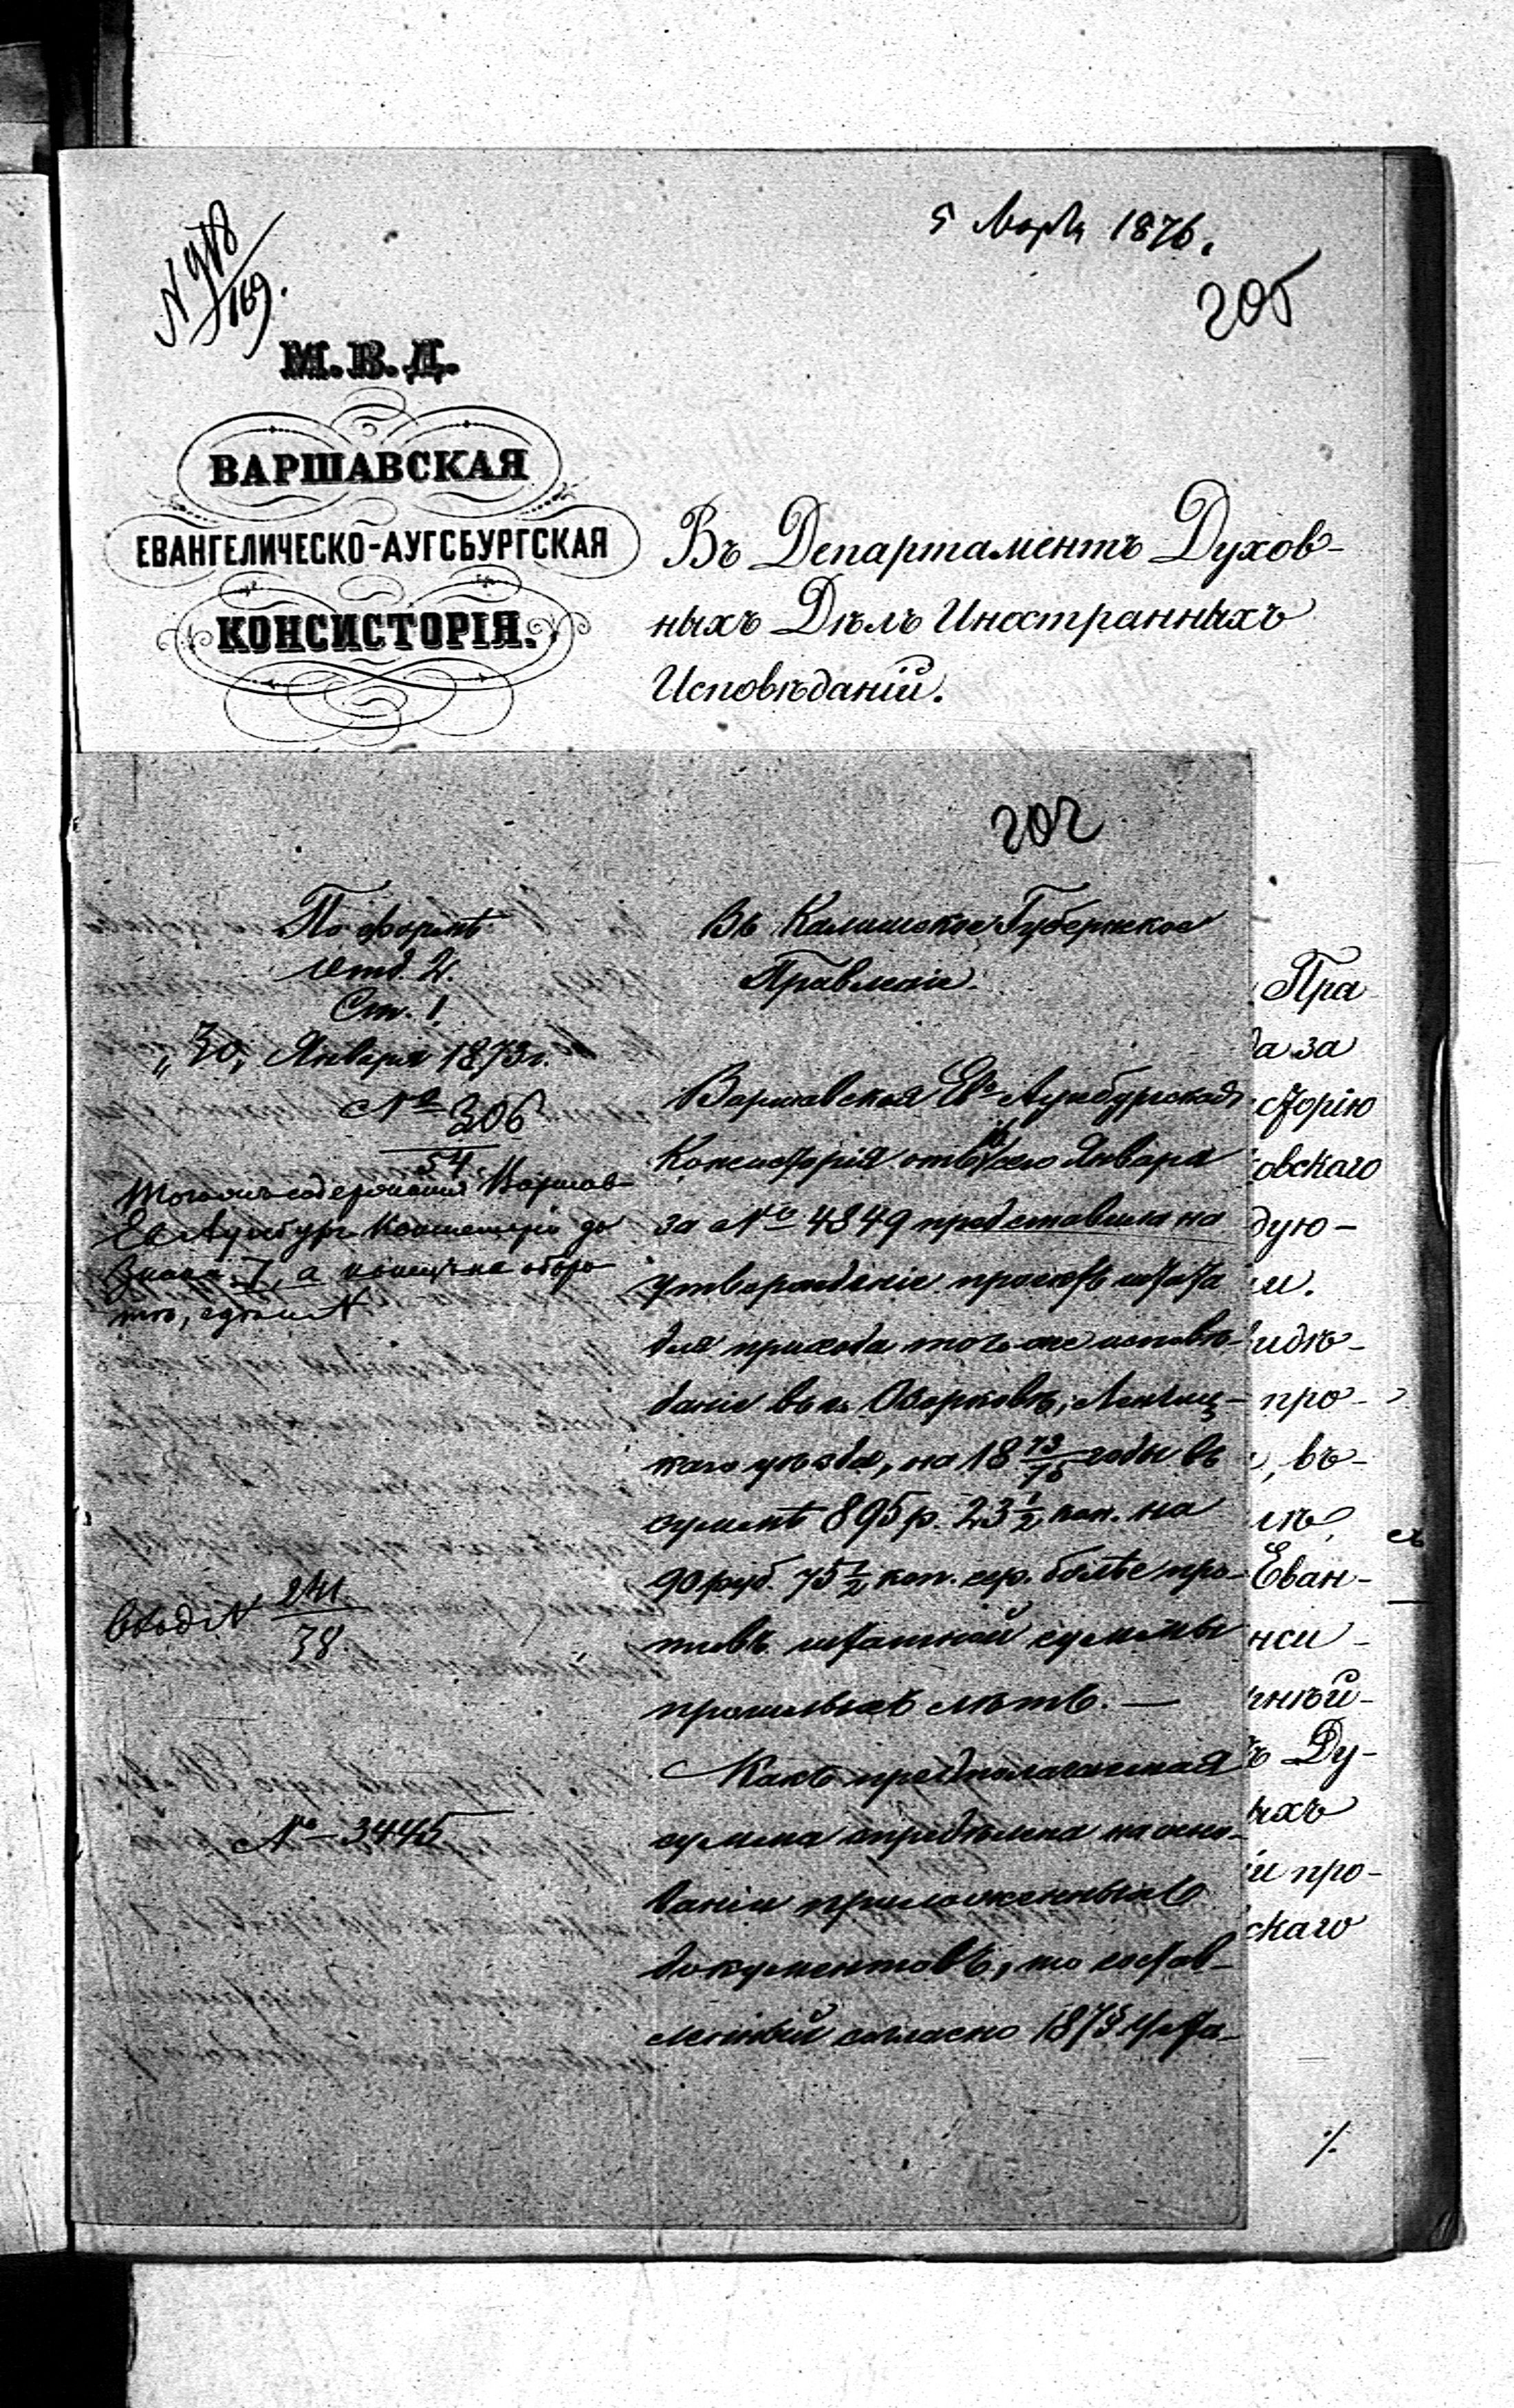 5 Марта 1876.
205
М.В.Д.
ВАРШАВСКАЯ
ЕВАНГЕЛИЧЕСКО-АУГСБУРГСКАЯ
КОНСИСТОРІЯ.
Въ Департаментъ Духов-
ныхъ Дѣлъ Иностранныхъ
Исповѣданій.
202
По формѣ
Отд. 2.
Ст. 1.
"30" Января 1873 г.
№ 306
54
Варшав-
до
знака а
№
Вход №
38
№ 3445
Въ Калишское Губернское
Правленіе.
Варшавская Ев. Аугсбургская
Консисторія отъ сего Января
за № 4849 представила на
утвержденіе проектъ штата
для прихода того же исповѣ-
данія въ г. Озорковѣ, Ленчиц-
каго уѣзда, на 18 73/75 годы въ
суммѣ 895 р. 23 1/2 коп. на
90 руб. 75 1/2 коп. сер. болѣе про-
тивъ штатной суммы
прошлыхъ лѣтъ. —
Какъ предполагаемая
сумма опредѣлена на осно-
ваніи приложенныхъ
документовъ, то состав-
ленный согласно
Пра
да за
сторію
овскаго
дую-
ми.
видѣ-
про-
, въ-
Еван-
нси-
чнѣй-
ъ Ду-
ныхъ
и про-
скаго